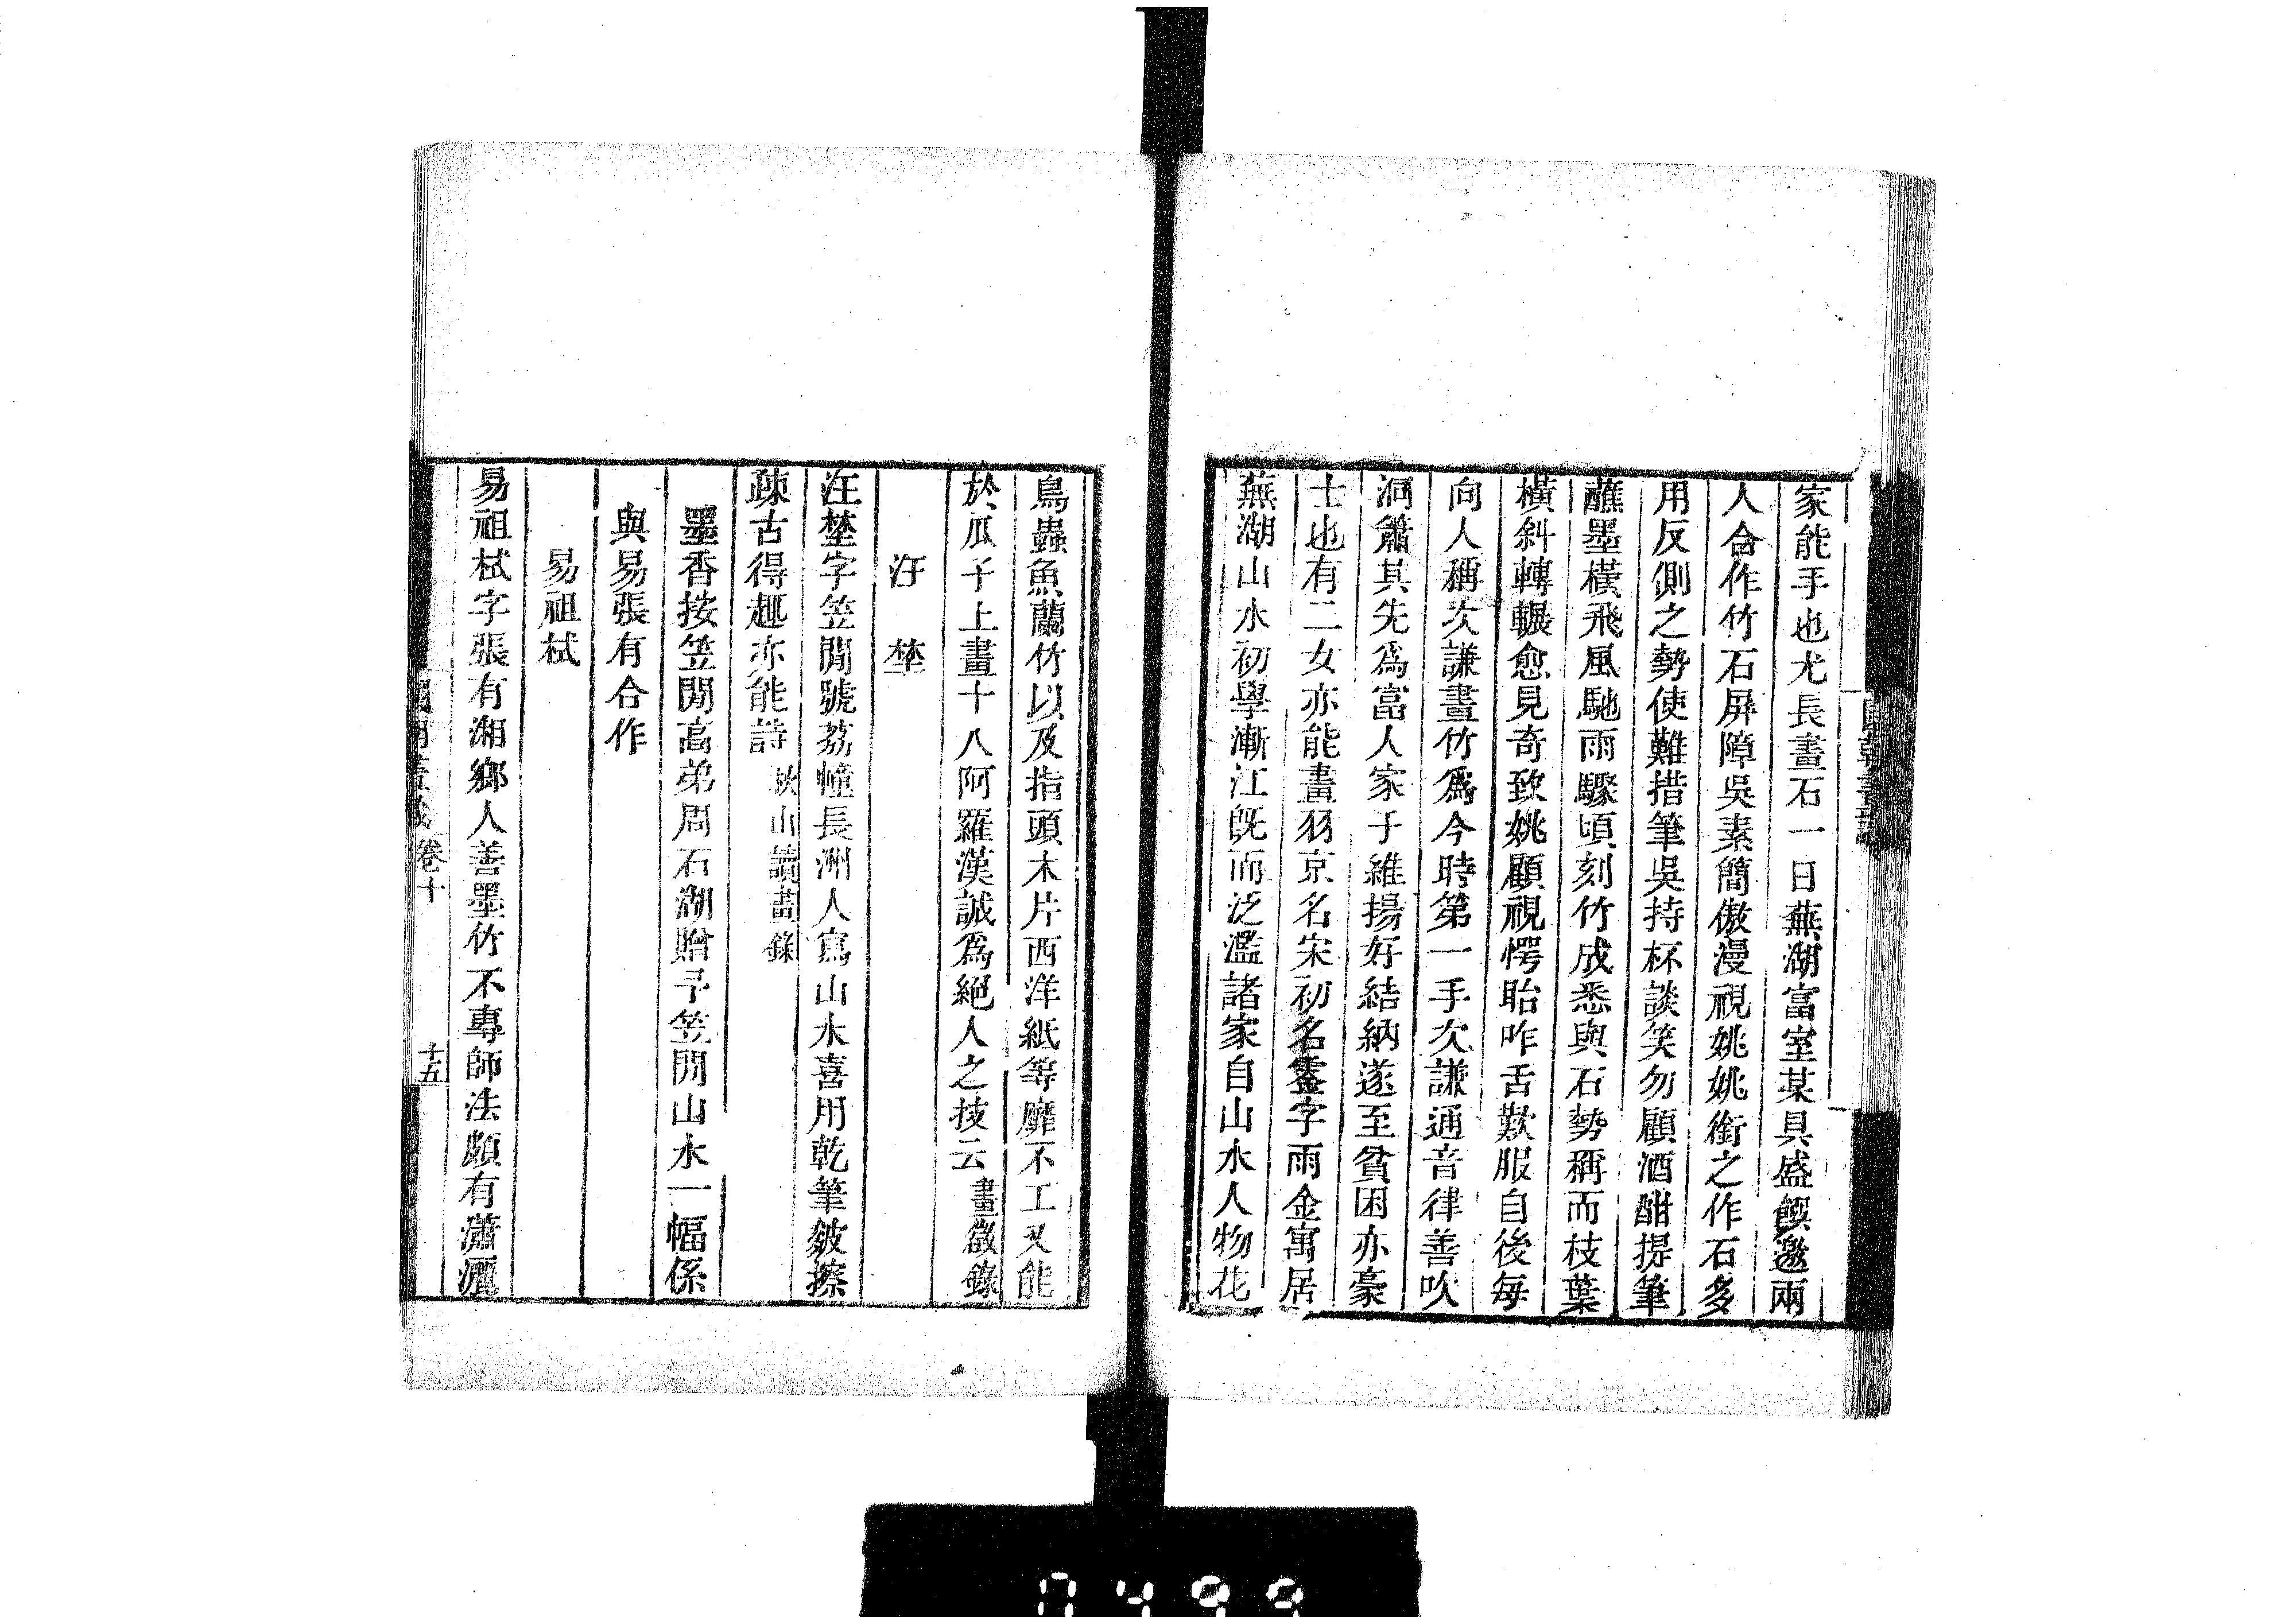 家能手也尤長畫石一日蕪湖富室某具盛饌邀兩
人合作竹石屏障吳素簡傲漫視姚姚銜之作石多
用反側之勢使難措筆吳持杯談笑勿顧酒酣提筆
蘸墨橫飛風馳雨驟頃刻竹成悉與石勢稱而枝葉
橫斜轉輾愈見奇致姚顧視愕眙咋舌歎服自後每
向人稱次謙畫竹爲今時第一手次謙通音律善吹
洞簫其先爲富人家子維揚好結納遂至貧困亦豪
士也有二女亦能畫羽京名宋初名霻字雨金寓居
蕪湖山水初學漸江旣而泛濫諸家自山水人物花
鳥蟲魚蘭竹以及指頭木片西洋紙等靡不工又能
於瓜子上畫十八阿羅漢誠爲絕人之技云畫徵錄
汪埜
汪埜字笠閒號荔幢長洲人寫山水喜用乾筆皴擦
疎古得趣亦能詩 山讀畫錄
墨香按笠閒高弟周石湖贈予笠閒山水一幅係
與易張有合作
易祖栻
易祖栻字張有湘鄉人善墨竹不專師法頗有瀟灑
卷十
十五
0499